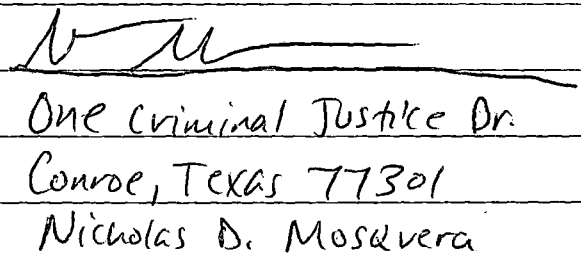 One Criminal Justice Dr.
Conroe, Texas 77301
Nicholas D. Mosquera